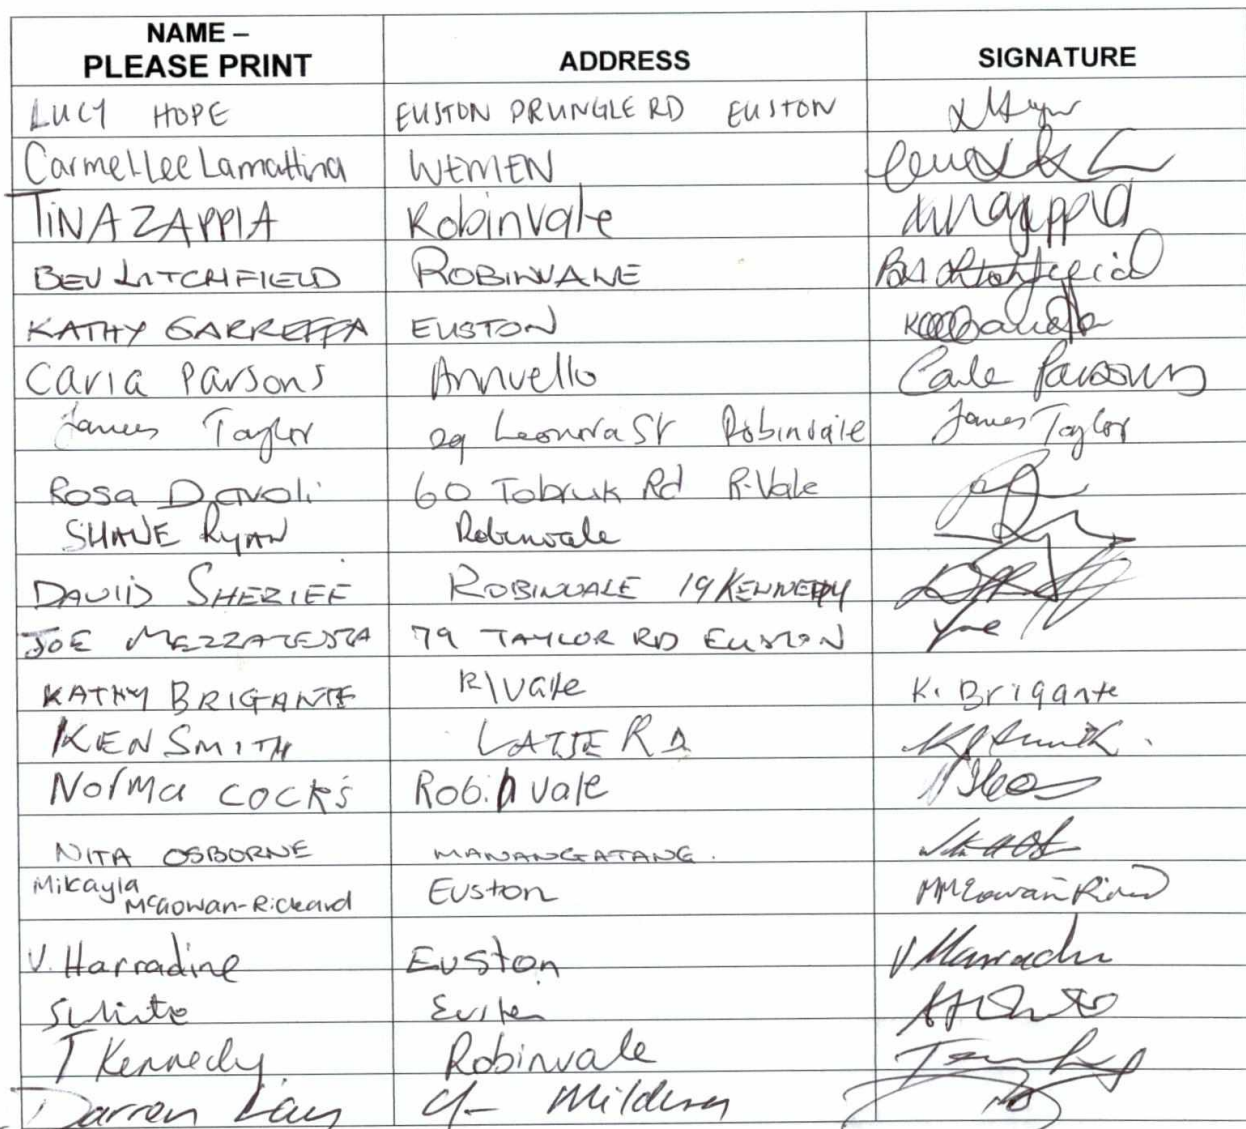 NAME – PLEASE PRINT ADDRESS SIGNATURE
LUCY HOPE EUSTON PRUNGLE RD EUSTON
Carmel-Lee Lamattina WEMEN
TINA ZAPPIA Robinvale
BEV LITCHFIELD ROBINVALE
KATHY GARREFFA EUSTON
Carla Parsons Annuello Carla Parsons
James Taylor 29 Leonora St Robinvale James Taylor
Rosa Davoli 60 Tobruk Rd R-Vale
SHANE RYAN Robinvale
DAVID SHERIFF ROBINVALE 19 KENNEDY
JOE MEZZATESTA 79 TAYLOR RD EUSTON
KATHY BRIGANTE R/Vale K. Brigante
KEN SMITH LATJE RD
Norma COCKS Robinvale
NITA OSBORNE MANANGATANG.
Mikayla McGowan-Rickard Euston
V. Harradine Euston V Harradine
Euston
T Kennedy Robinvale
Darren Mildura